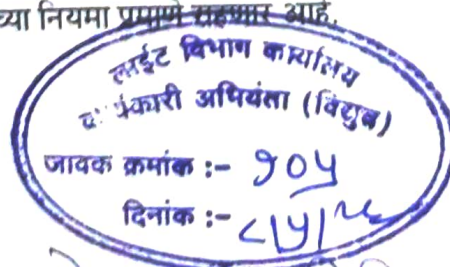 च्या नियमा प्रमाणे राहणार आहे.
लाईट विभाग कार्यालय
कार्यकारी अभियंता (विद्युत)
जावक क्रमांक :- १०५
दिनांक :- ८/५/